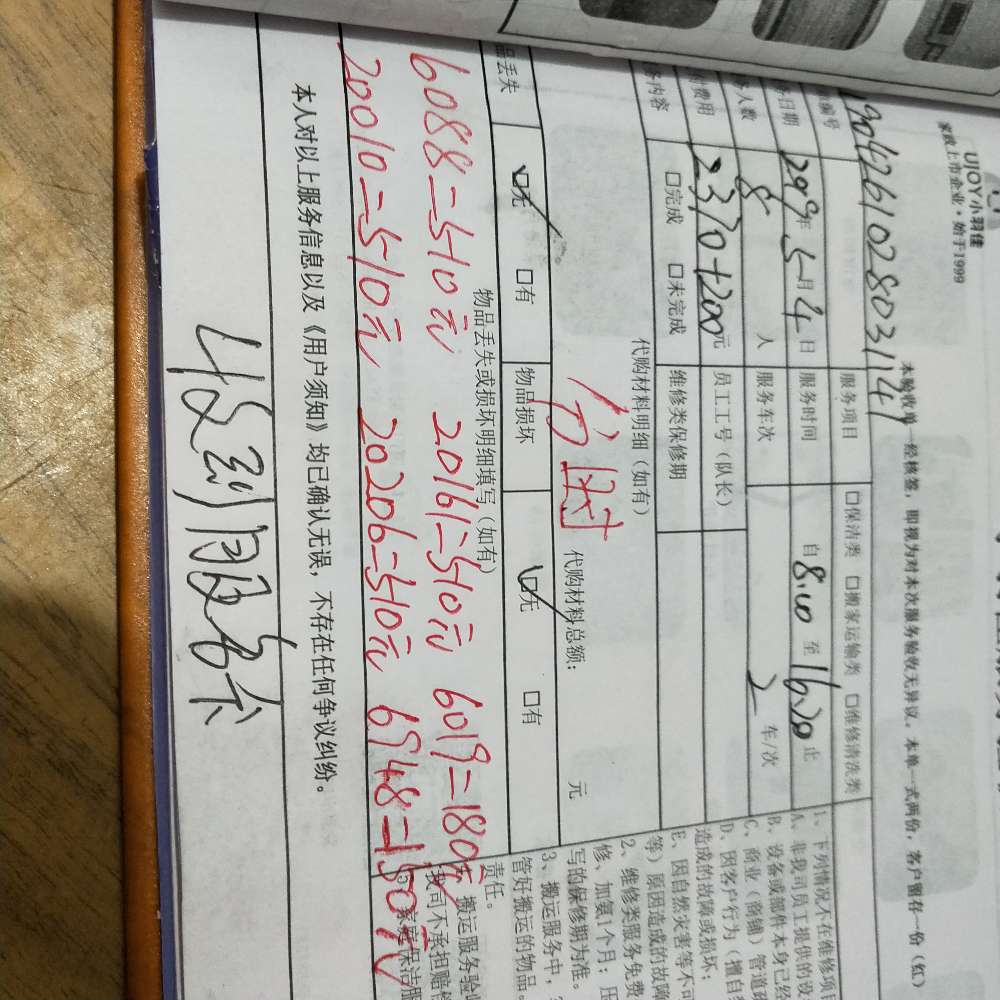 UJOY小羽佳
家政上市企业·始于1999
本验收单一经核签，即视为对本次服务验收无异议。本单一式两份，客户留存一份（红）
90426102803141
服务项目 □保洁类 □搬家运输类 □维修清洗类
日期 2019年5月4日 服务时间 自8:00至16:30止
人数 8 人 服务车次 2 车/次
费用 2370+200元 员工工号（队长）
内容 □完成 □未完成 维修类保修期
代购材料明细（如有）
代购材料总额： 元
品丢失 ☑无 □有 物品损坏 ☑无 □有
物品丢失或损坏明细填写（如有）
6088-510元 20161-510元 6019-180元
20010-510元 20206-510元 6948-150元
本人对以上服务信息以及《用户须知》均已确认无误，不存在任何争议纠纷。
收到服务卡
1、下列情况不在维修项
A、非我司员工提供的设
B、设备或部件本身已经
C、商业（商铺）管道
D、因客户行为（擅自
造成的故障或损坏；
E、因自然灾害等不可
等）原因造成的故障
2、维修类服务免费
修、加氨1个月；压
写的保修期为准。
3、搬运服务中，
管好搬运的物品。
责任。
搬运服务验收
我司不承担赔偿
家庭保洁服